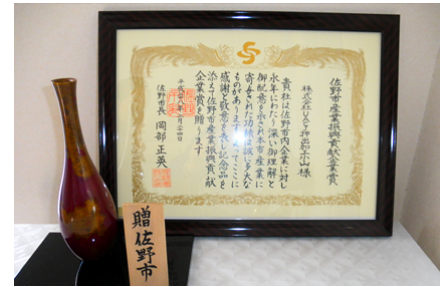 佐野市産業振興貢献企業賞
様
貴社は佐野市内企業に対し
永年にわたり深い御理解と
御配意を示され本市産業に
寄与された功績は誠に多大な
ものがあります よってここに
感謝と敬意を表し記念品を
添えて佐野市産業振興貢献
企業賞を贈ります
佐野市長 岡部正英
贈佐野市